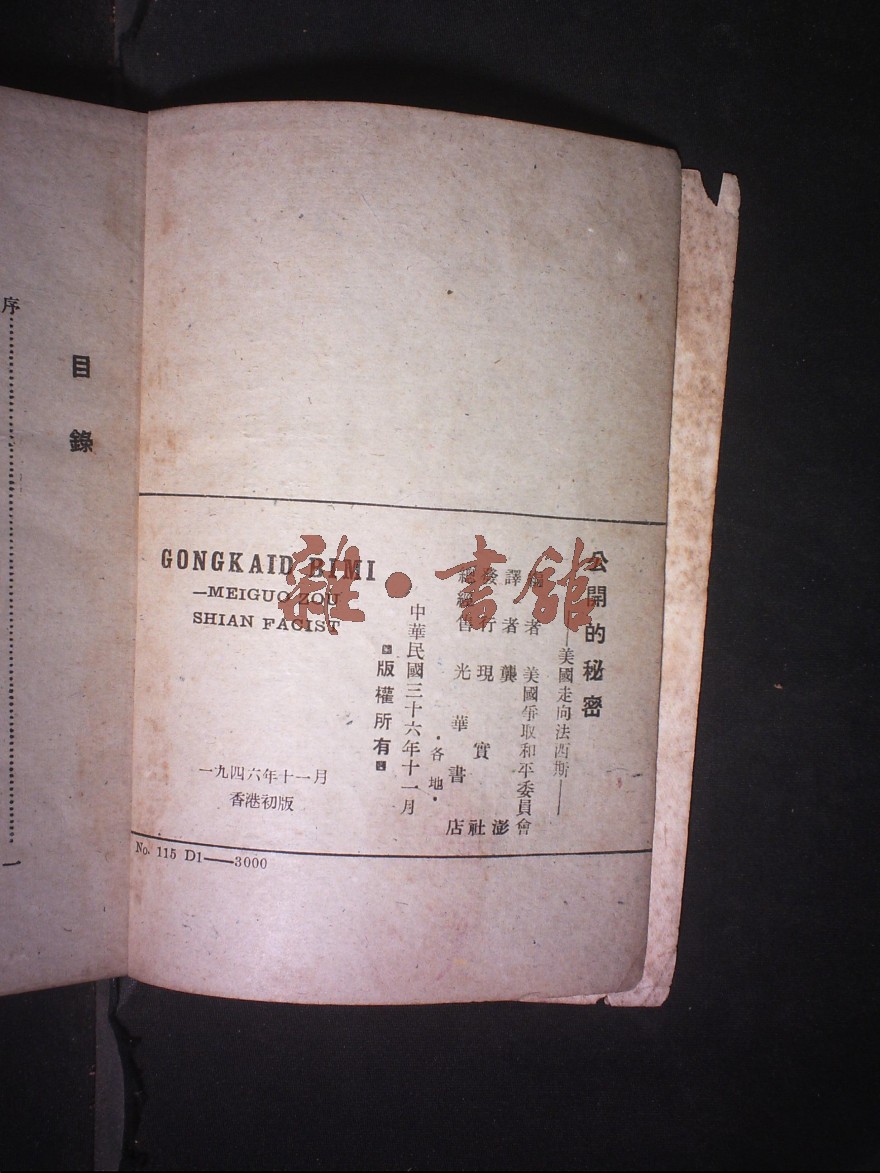 公開的秘密
——美國走向法西斯——
編者 美國爭取和平委員會
譯者 龔澎
發行 現實社
總經售 光華書店
·各地·
中華民國三十六年十一月
版權所有
GONGKAID BIMI
—MEIGUO ZOU
SHIAN FACIST
一九四六年十一月
香港初版
No. 115 D1——3000
目錄
序 一
雜·書館